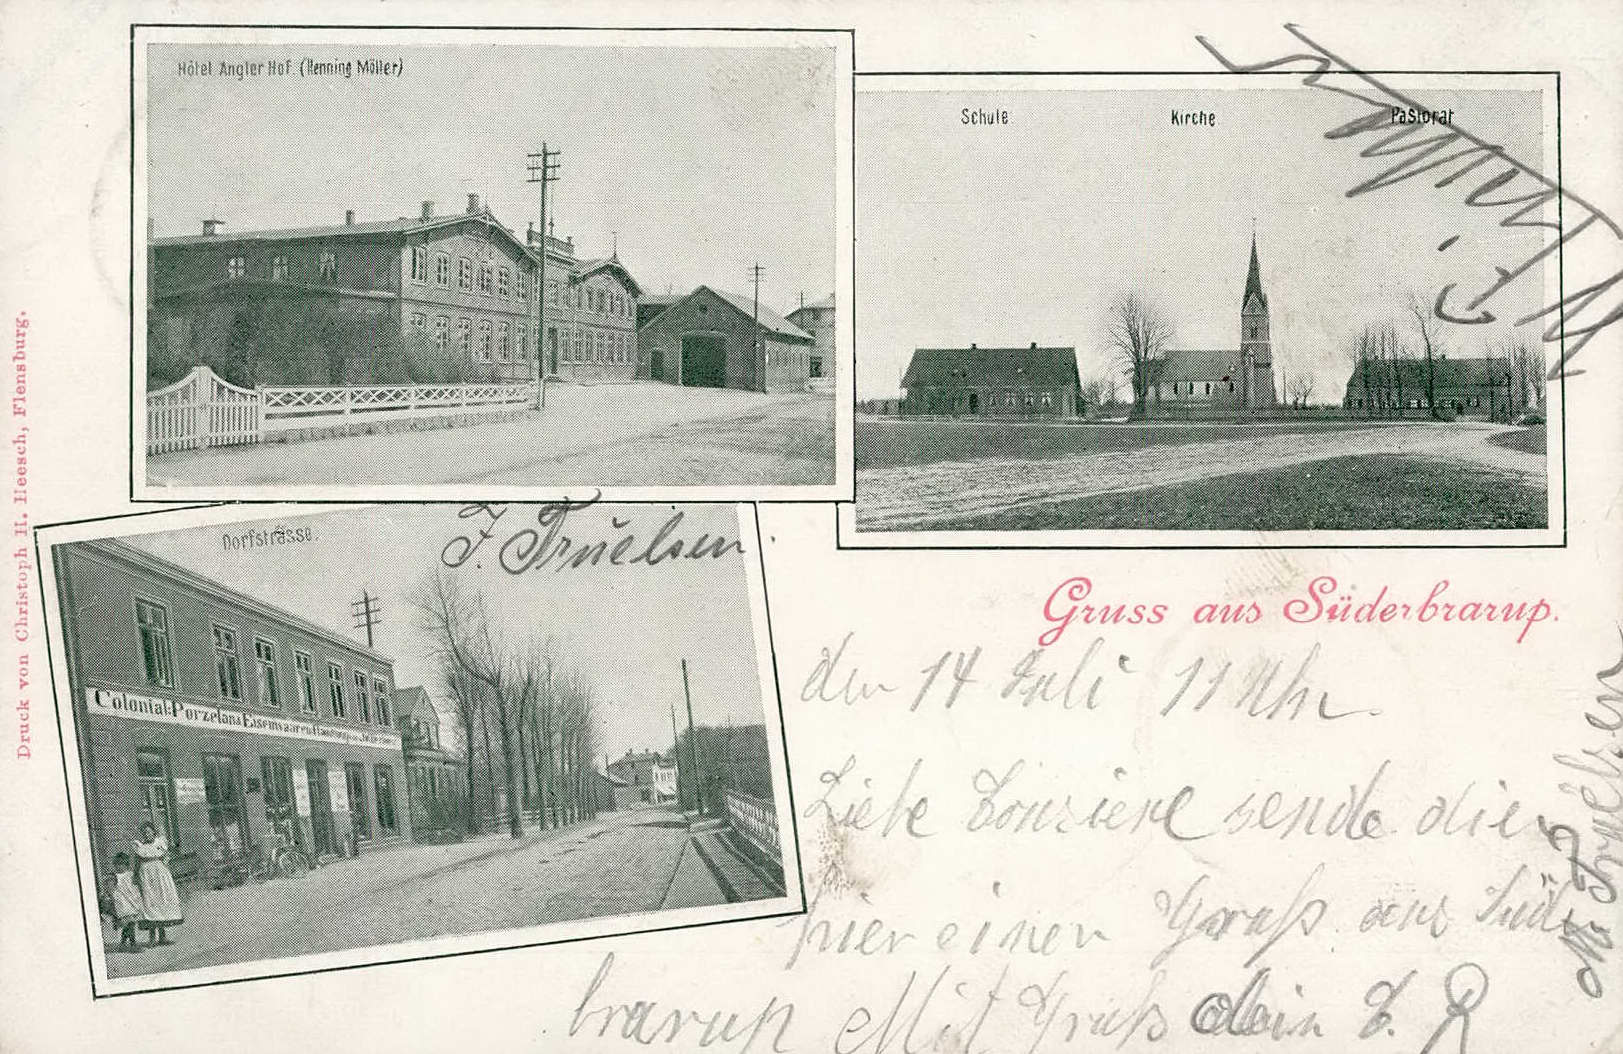 Hôtel Angler Hof (Henning Möller)
Schule
Kirche
Pastorat
Dorfstrasse.
J. Truelsen.
Colonial- Porzelan & Eisenwaaren
Druck von Christoph H. Heesch, Flensburg.
Gruss aus Süderbrarup.
den 14 Juli 11 Uhr.
Liebe sende die
hier einen Gruß aus Süd
brarup Mit Gruß dein
Truelsen